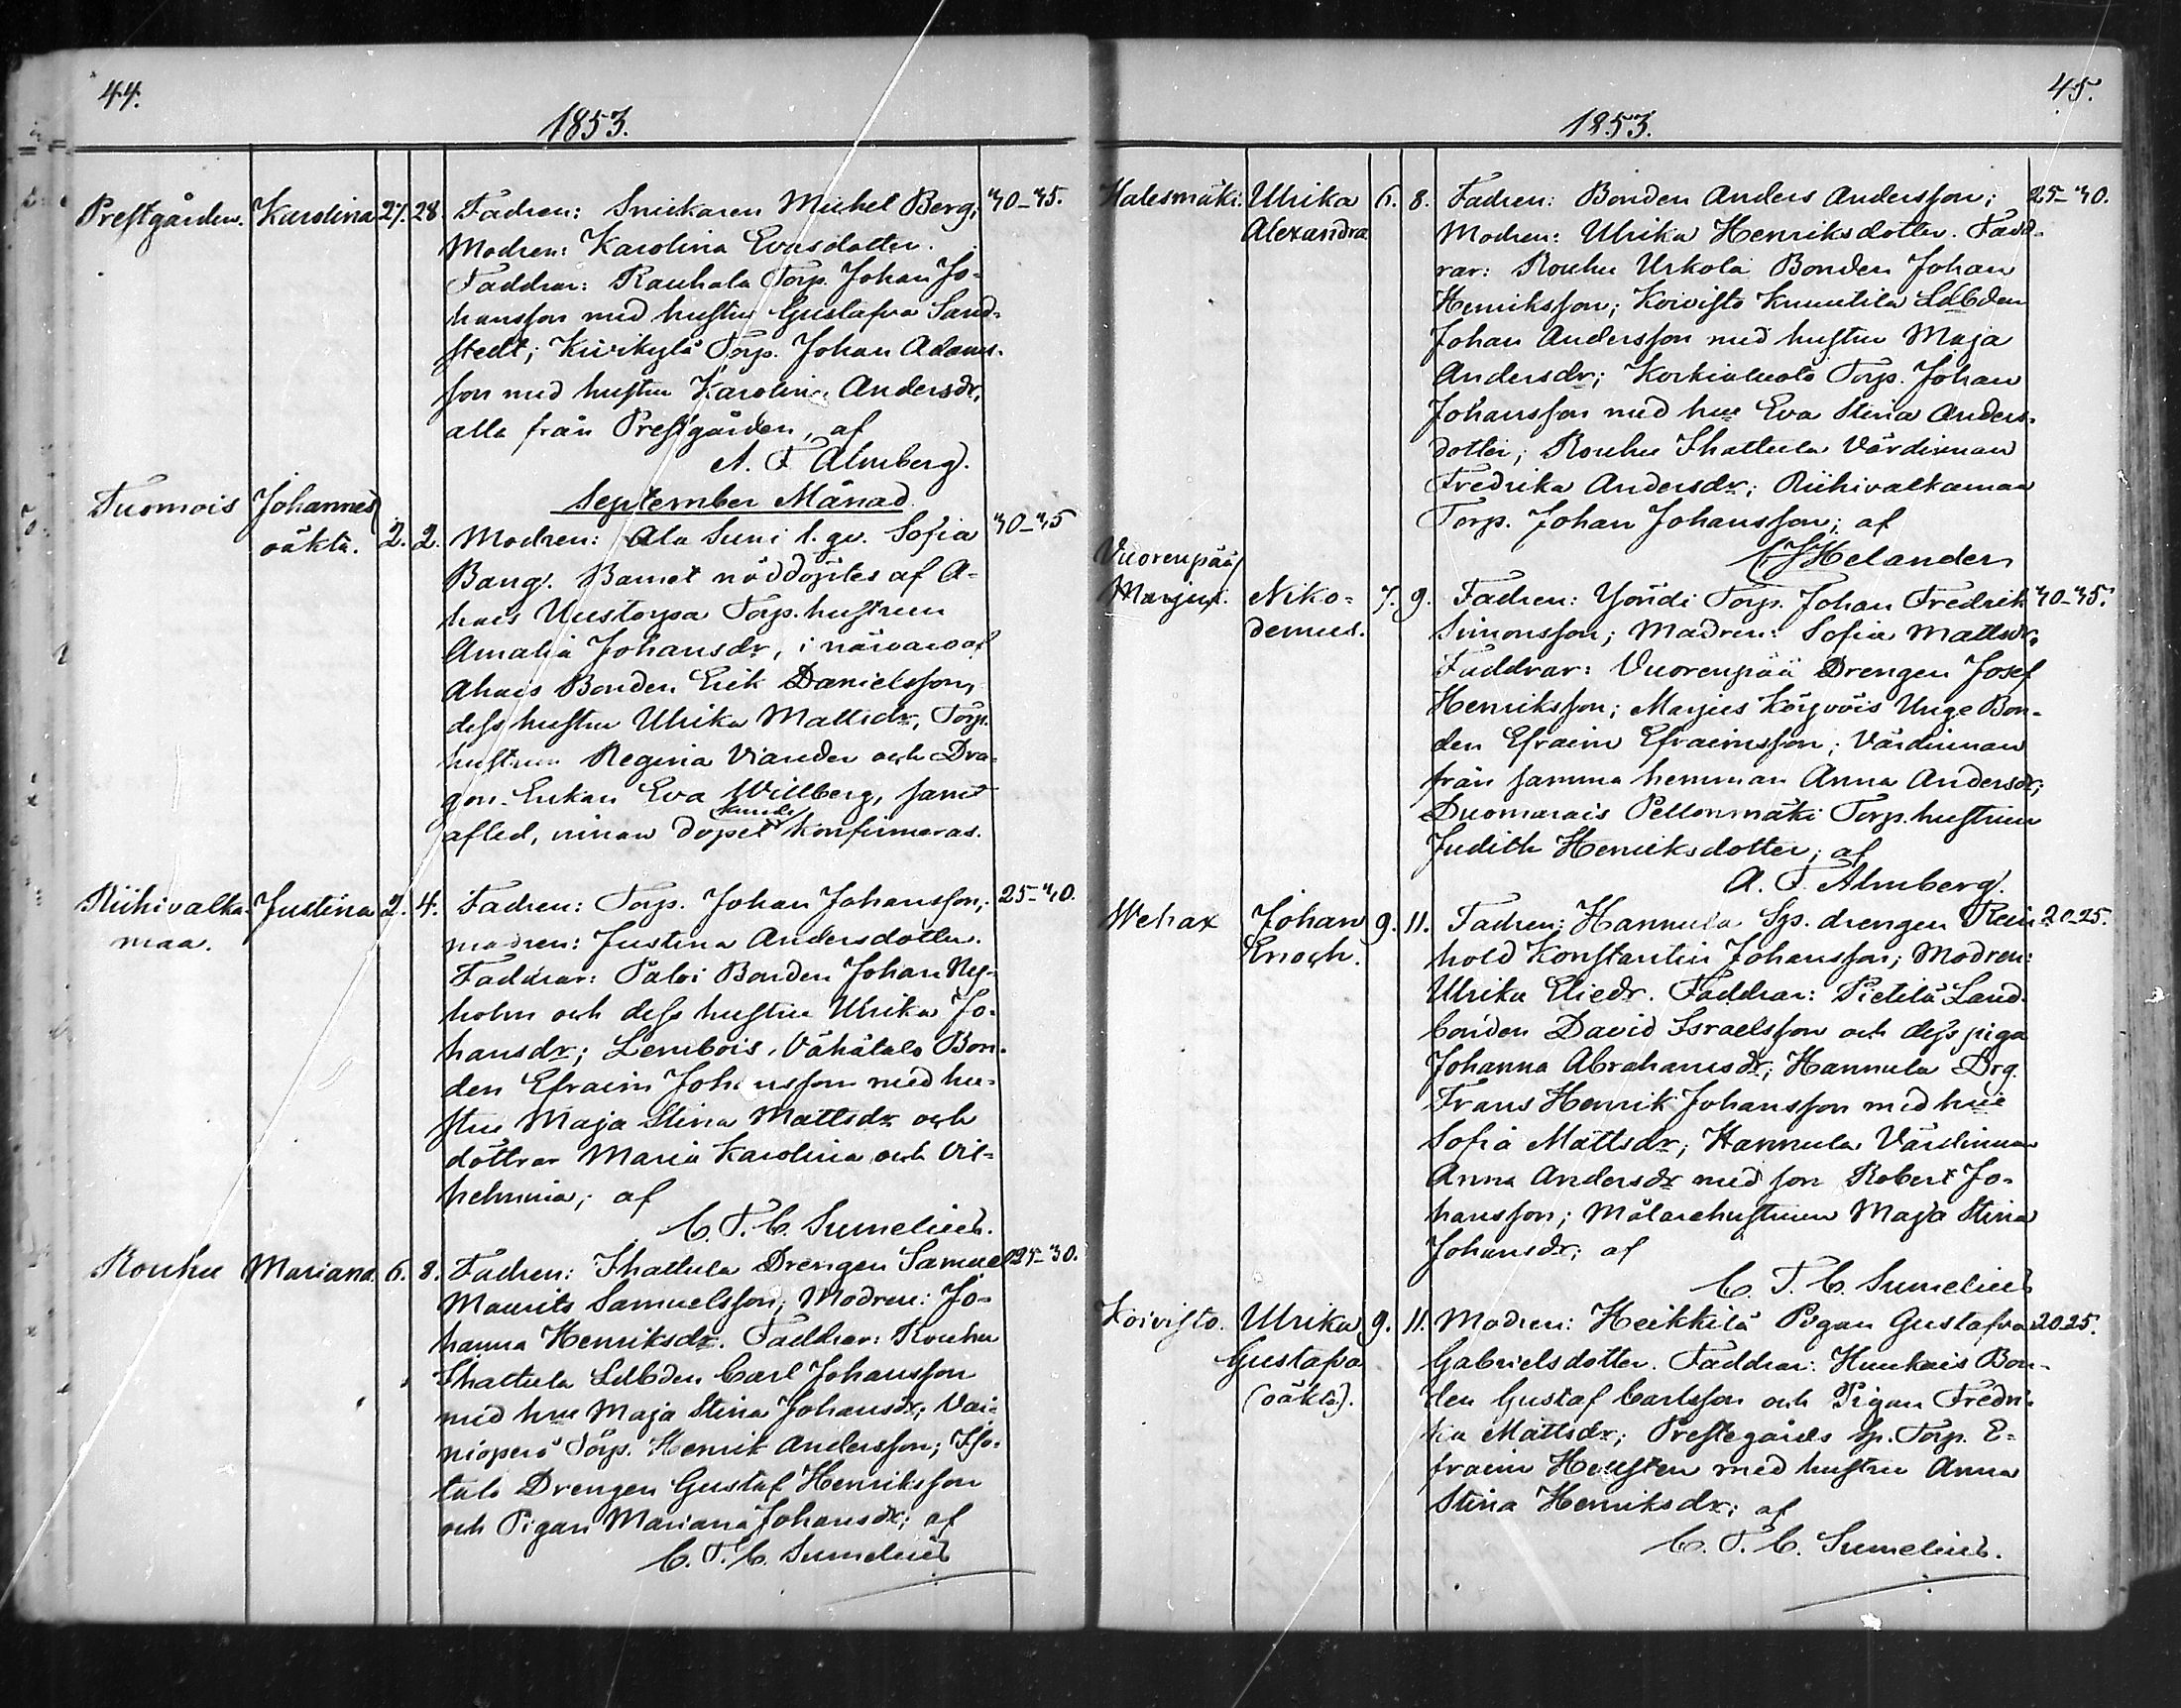 44.
1853.
Prestgården. Karolina 27. 28. Fadren: Snickaren Michel Berg; 40-45.
Modren: Karolina Evasdotter.
Faddrar: Rauhala Torp. Johan Jo-
hansson med hustru Gustafva Sand-
stedt; Kivikylä Torp. Johan Adams-
son med hustru Karolina Andersdr,
alla från Prestgården, af
A. F. Almberg.
September Månad.
Tuomois Johannes
oäkta. 2. 2. Modren: Ala Suni l. qv. Sofia 40-45
Bang. Barnet nöddöptes af A-
hais Uustorpa Torp. hustrun
Amalia Johansdr, i närvaro af
Ahais Bonden Erik Danielsson,
dess hustru Ulrika Mattsdr, Torp.
hustrun Regina Viander och Dra-
gon-Enkan Eva Willberg, samt
afled, innan dopet kunde konfirmeras.
Riihivalka-
maa. Justina 2. 4. Fadren: Torp. Johan Johansson; 25-40.
modren: Justina Andersdotter.
Faddrar: Paloi Bonden Johan Ny-
holm och dess hustru Ulrika Jo-
hansdr; Lembois, Vähätalo Bon-
den Efraim Johansson med hu-
stru Maja Stina Mattsdr och
döttrar Maria Karolina och Vil-
helmina; af
C. T. C. Sumelius.
Rouhu Mariana 6. 8. Fadren: Thattula Drengen Samuel 25-30.
Maurits Samuelsson; Modren: Jo-
hanna Henriksdr. Faddrar: Rouhu
Thattula Ldbden Carl Johansson
med hru Maja Stina Johansdr; Vai-
niöperä Torp. Henrik Andersson; Iso-
talo Drengen Gustaf Henriksson
och Pigan Mariana Johansdr; af
C. T. C. Sumelius
45.
1853.
Halesmäki. Ulrika
Alexandra 6. 8. Fadren: Bonden Anders Andersson; 25-40.
Modren: Ulrika Henriksdotter. Fadd-
rar: Rouhu Urkola Bonden Johan
Henriksson; Koivisto Knuutila Ldbden
Johan Andersson med hustru Maja
Andersdr; Korkialuoto Torp. Johan
Johansson med hru Eva Stina Anders-
dotter; Rouhu Thattula Värdinnan
Fredrika Andersdr; Riihivalkamaa
Torp. Johan Johansson; af
C J Helander
Vuorenpää/
Marjus. Niko-
demus. 7. 9. Fadren: Yöndi Torp. Johan Fredrik 40-45.
Simonsson; Madren: Sofia Mattsdr.
Faddrar: Vuorenpää Drengen Josef
Henriksson; Marjus Köyvöis Unge Bon-
den Efraim Efraimsson; Värdinnan
från samma hemman Anna Andersdr;
Duomarais Pellonmäki Torp. hustrun
Judith Henriksdotter; af
A. F. Almberg.
Wehax Johan
Enoch. 9. 11. Fadren: Hannula Sp. drengen Rein- 20-25.
hold Konstantin Johansson; Modren:
Ulrika Eliedr. Faddrar: Pietilä Land-
bonden David Israelsson och dess piga
Johanna Abrahamsdr; Hannula Drg.
Frans Henrik Johansson med hru
Sofia Mattsdr; Hannula Värdinnan
Anna Andersdr med son Robert Jo-
hansson; Målarehustrun Maja Stina
Johansdr; af
C. T. C. Sumelius
Koivisto. Ulrika
Gustafva
(oäkta). 9. 11. Modren: Heikkilä Pigan Gustafva 20-25.
Gabrielsdotter. Faddrar: Huukais Bon-
den Gustaf Carlsson och Pigan Fredri-
ka Mattsdr; Prestegårds sp. Torp. E-
fraim Heusten med hustru Anna
Stina Henriksdr; af
C. T. C. Sumelius.